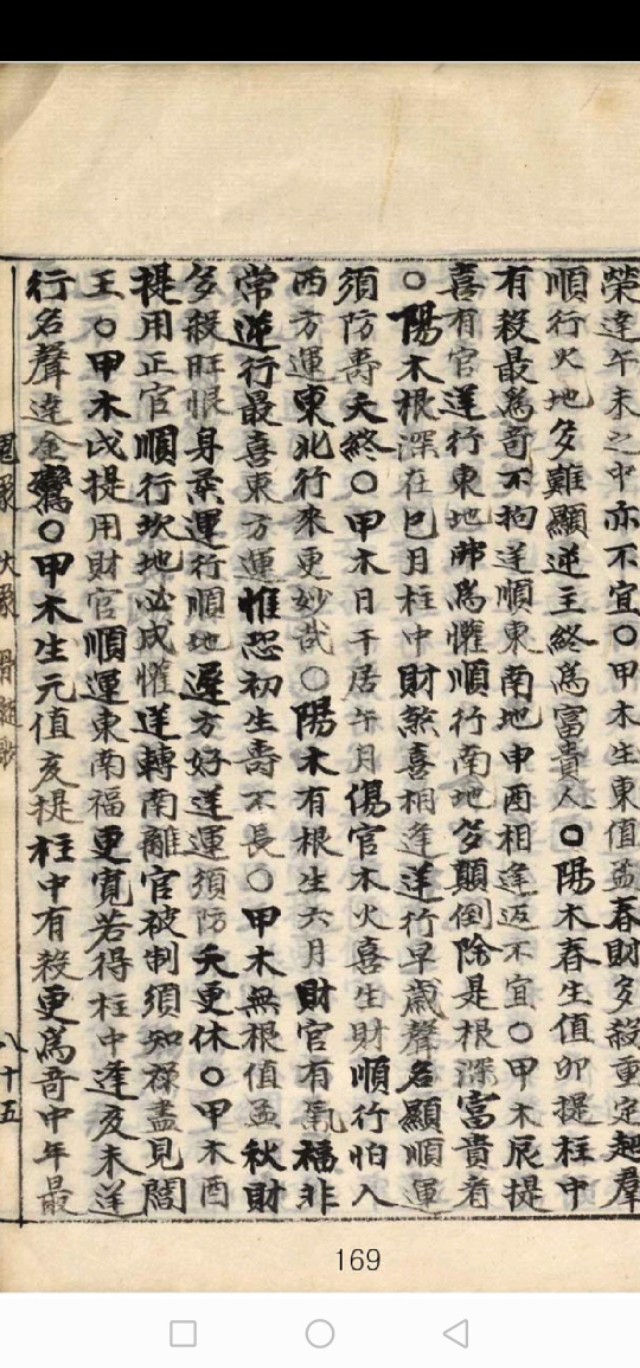 榮達午未之中亦不宜〇甲木生東值孟春財多殺重定越羣
順行火地多難顯逆主終為富貴人〇陽木春生值卯提柱中
有殺最為奇不拘逆順東南地申酉相逢返不宜〇甲木辰提
喜有官逆行東地時為懼順行南地多顛倒除是根深富貴者
〇陽木根深在巳月柱中財煞喜相逢逆行早歲聲名顯順運
須防壽夭終〇甲木日干居午月傷官木火喜生財順行怕入
西方運東北行來更妙哉〇陽木有根生六月財官有氣福非
常逆行最喜東方運惟恐初生壽不長〇甲木無根值孟秋財
多殺旺恨身柔運行順地遲方好逆運須防夭更休〇甲木酉
提用正官順行坎地必成懽逆轉南離官被制須知祿盡見閻
王〇甲木戌提用財官順運東南福更寬若得柱中逢亥未逆
行名聲達金鸞〇甲木生元值亥提柱中有殺更為奇中年最
骨髓歌
八十五
169